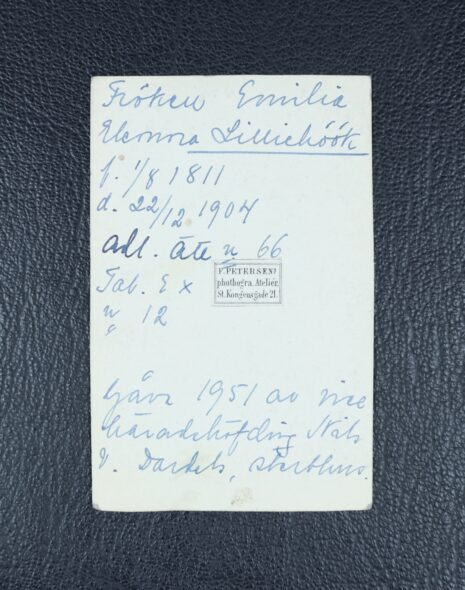 Fröken Emilia
Eleonora Lilliehöök
f. 1/8 1811
d. 22/12 1904
adl. ätt n 66
F. PETERSENS
photogra. Atelier.
St. Kongensgade 21.
Tab. E x
n 12
Gåva 1951 av vice
häradshöfding Nils
v. Dardels, sterbhus.